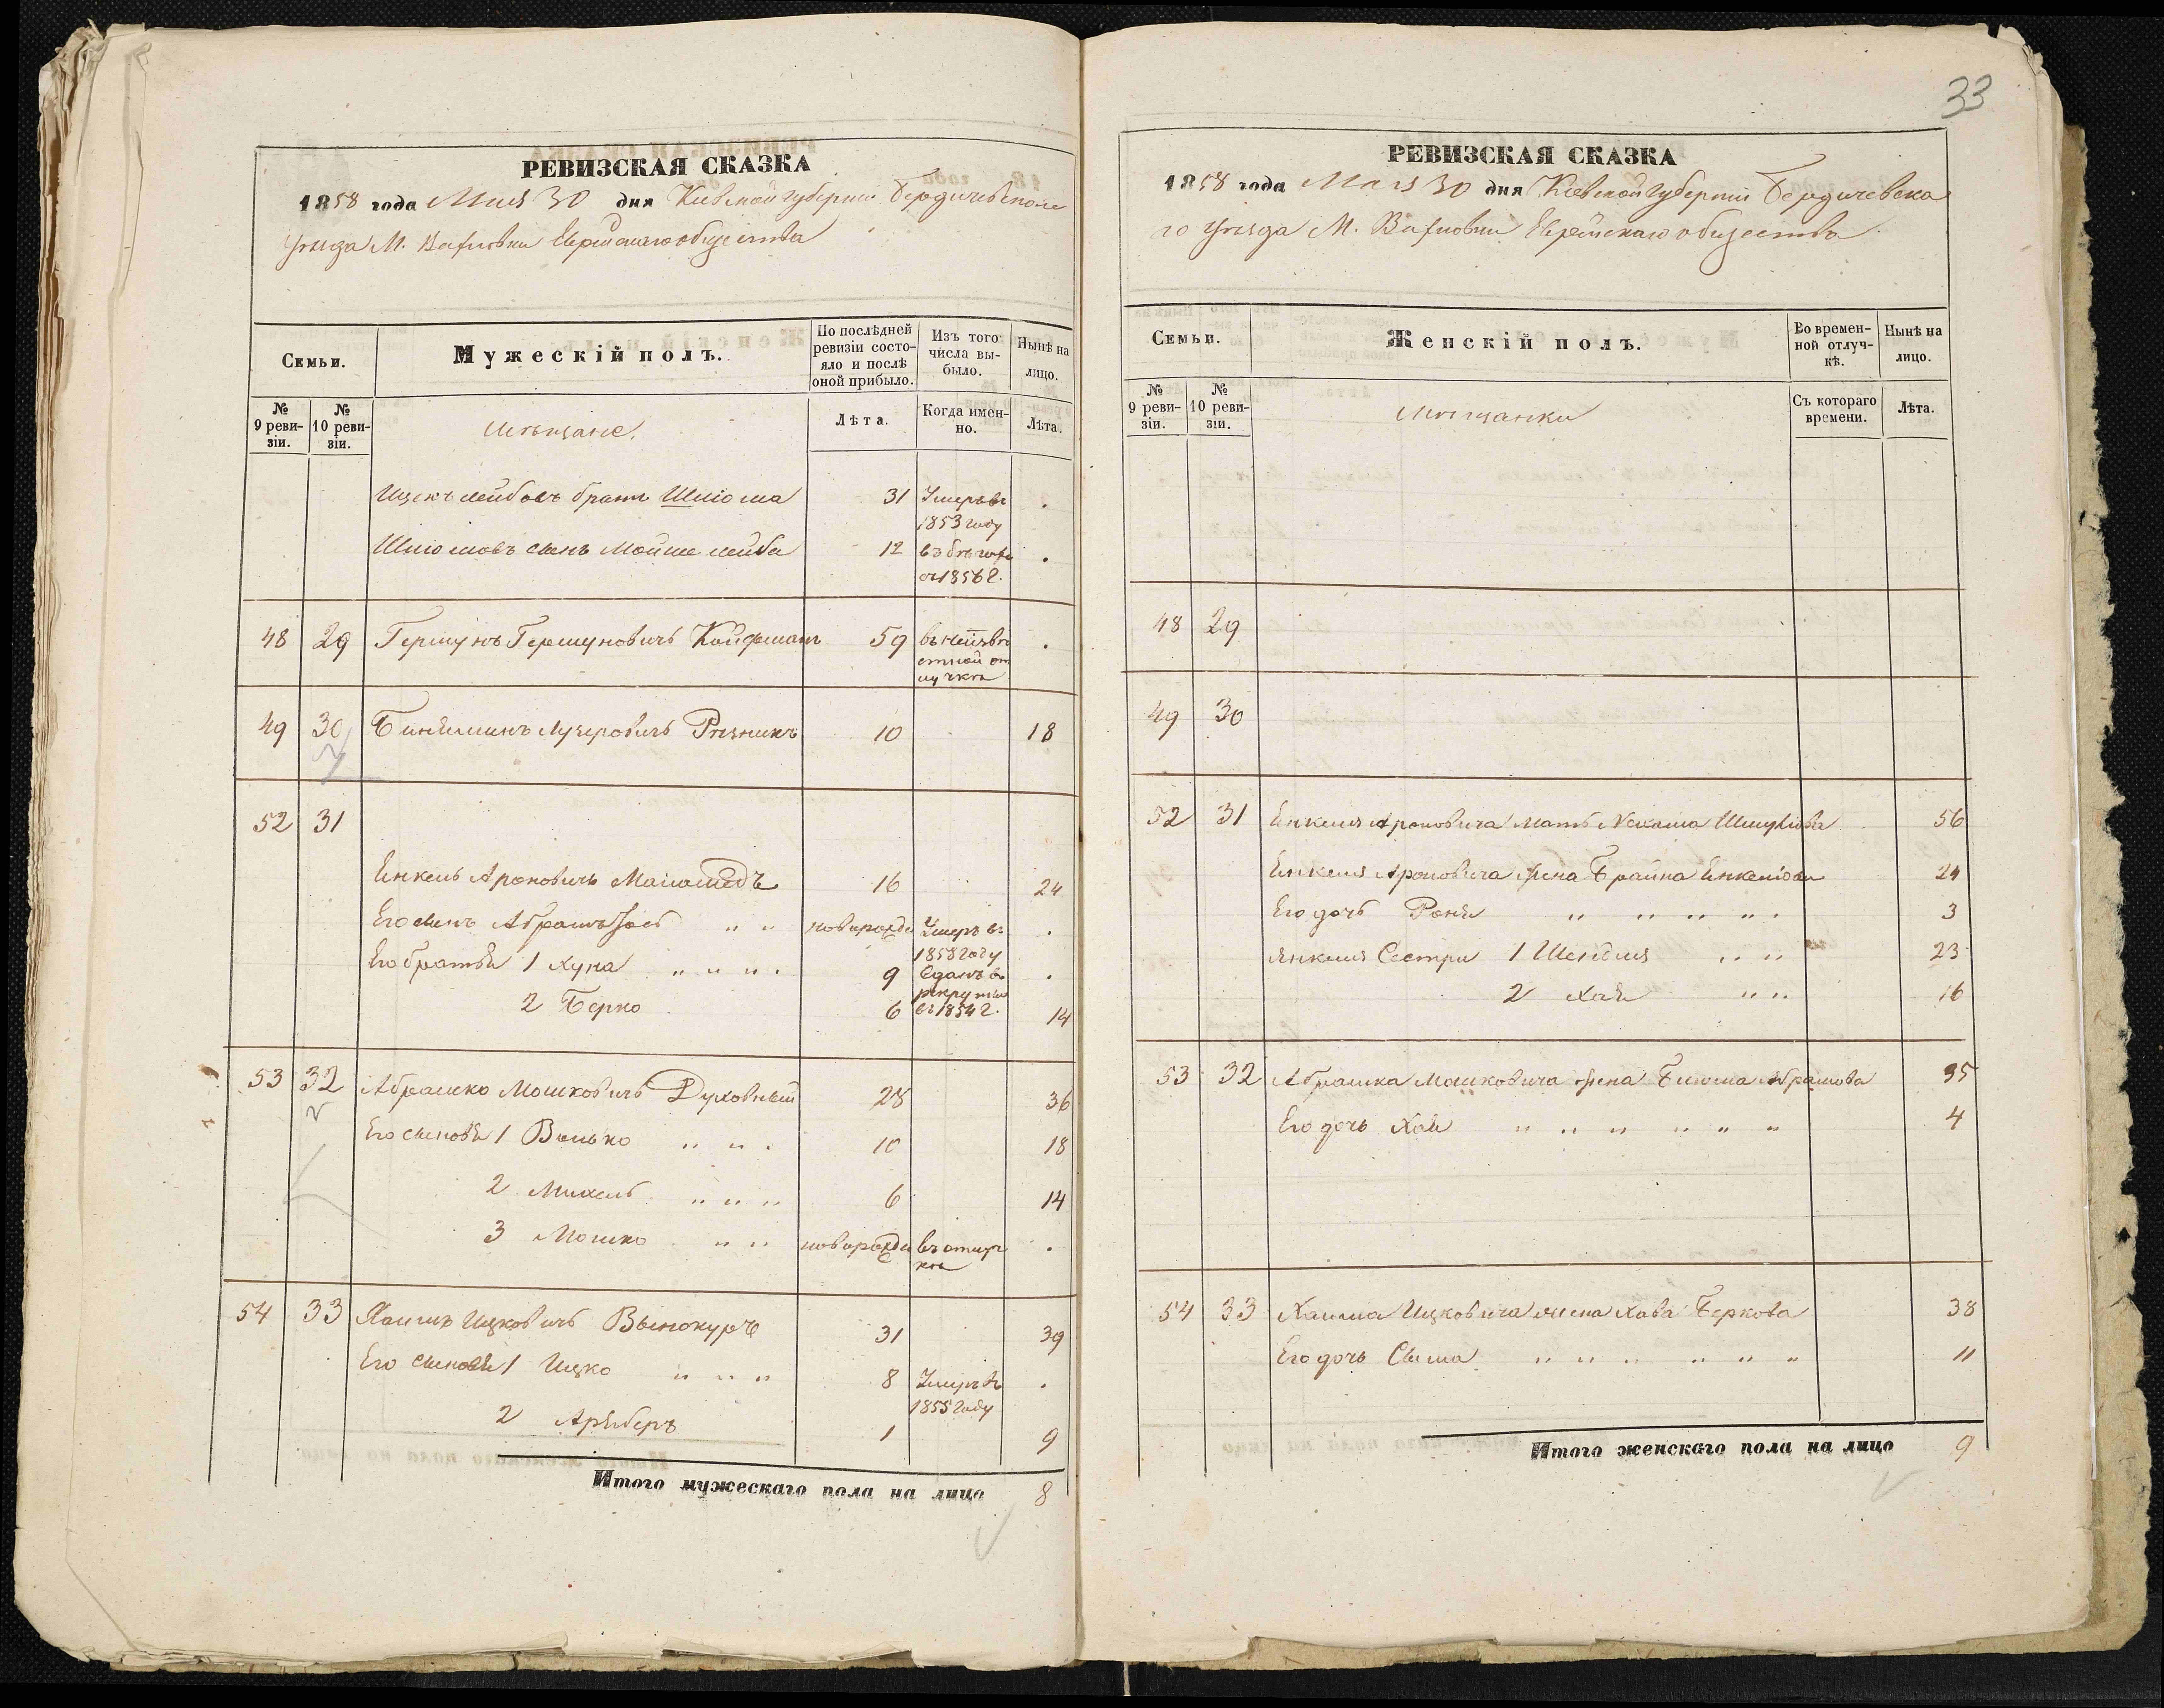 РЕВИЗСКАЯ СКАЗКА
1858 года Мая 30 дня Кіевской губерніи Бердичевскаго
уезда М. Вахновки Еврейскаго общества
Семьи.
Мужескій полъ.
По послѣдней ревизіи состояло и послѣ оной прибыло.
Изъ того числа выбыло.
Нынѣ на лицо.
№ 9 ревизіи.
№ 10 ревизіи.
мѣщане.
Лѣта.
Когда именно.
Лѣта.
Ицекъ Лейбовъ братъ Шліома 31 Умеръ въ
1853 году
Шліомовъ сынъ Мойше Лейба 12 въ бегахъ
съ 1856 г.
48 29 Гершунъ Гершуновичъ Койфманъ 59 въ неизве
стной от
лучке
49 30 Биняминъ Лузеровичъ Резникъ 10 18
52 31
Янкель Ароновичъ Маламедъ 16 24
Его сынъ новорожде Умеръ въ
1858 году
Его братья 1 Хуна 9 Сданъ в
рекруты
2 Берко 6 въ 1854 г. 14
53 32 Абрашко Мошковичъ Духовный 28 36
Его сыновья 1 Волько 10 18
2 Михель 6 14
3 Мошко новорожде въ отлуч
ке
54 33 Хаимъ Ицковичъ Винокуръ 31 39
Его сыновья 1 Ицко 8 Умеръ въ
1855 году
2 Арыберъ 1 9
Итого мужескаго пола на лицо 8
33
РЕВИЗСКАЯ СКАЗКА
1858 года Мая 30 дня Кіевской губерніи Бердичевска
го уезда М. Вахновки Еврейскаго общества
Семьи.
Женскій полъ.
Во временной отлучкѣ.
Нынѣ на лицо.
№ 9 ревизіи.
№ 10 ревизіи.
мѣщанки
Съ котораго времени.
Лѣта.
48 29
49 30
52 31 Янкеля Ароновича мать 56
Янкеля Ароновича жена Брайна Янкеліова 24
Его дочь Роня 3
Янкеля Сестры 1 Шейдля 23
2 Хая 16
53 32 Абрашка Мошковича жена Абрамова 35
Его дочь Хая 4
54 33 Хаима Ицковича жена Хава Беркова 38
Его дочь Сыма 11
Итого женскаго пола на лицо 9